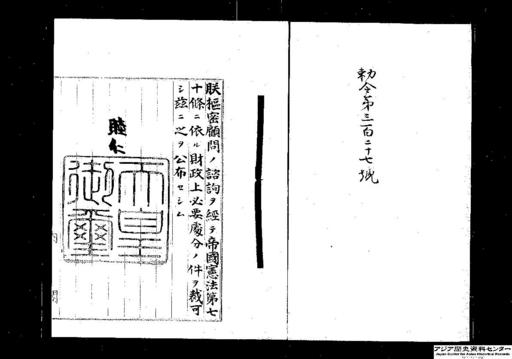 勅令第三百二十七號
朕樞密顧問ノ諮詢ヲ經テ帝國憲法第七
十條ニ依ル財政上必要處分ノ件ヲ裁可
シ茲ニ之ヲ公布セシム
睦仁
天皇
御璽
内閣
アジア歴史資料センター
Japan Center for Asian Historical Records